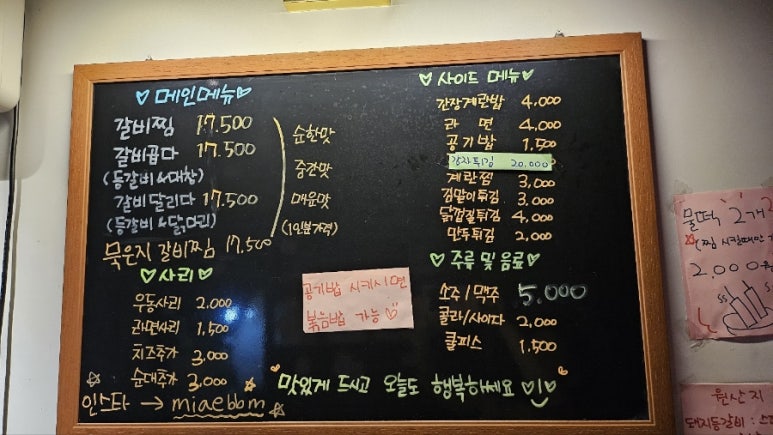 ♡ 메인메뉴 ♡
갈비찜 17.500
갈비곱다 17.500
(등갈비 & 대창)
갈비달리다 17.500
(등갈비 & 닭다리)
묵은지 갈비찜 17.500
순한맛
중간맛
매운맛
(1인분가격)
♡ 사리 ♡
우동사리 2.000
라면사리 1,500
치즈추가 3,000
순대추가 3,000
인스타 → miaebbm
♡ 사이드 메뉴 ♡
간장계란밥 4,000
라 면 4,000
공기밥 1,500
감자튀김 20,000
계란찜 3,000
김말이튀김 3,000
닭껍질튀김 4,000
만두튀김 2,000
♡ 주류 및 음료 ♡
소주 / 맥주 5.000
콜라/사이다 2,000
쿨피스 1,500
공기밥 시키시면
볶음밥 가능 ♡
"맛있게 드시고 오늘도 행복하세요"
물떡 2개
(찜 시킬때만
2.000
원산지
돼지등갈비 : 스